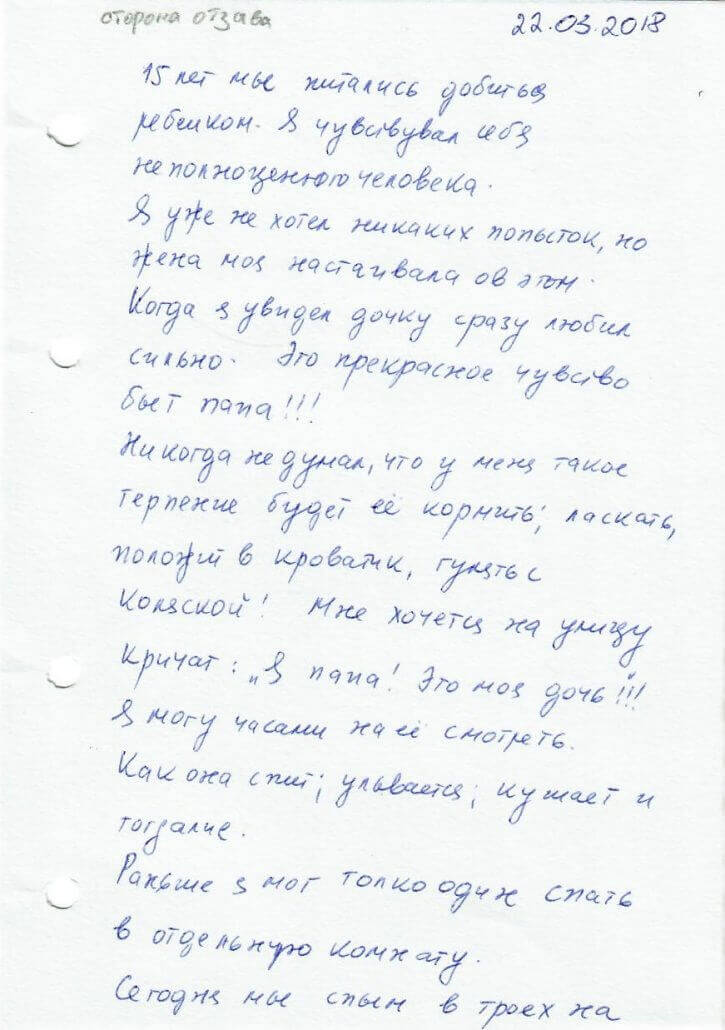 сторона отзава
22.03.2018
15 лет мые питались добиться
ребёнком. Я чувствувал себя
неполноценного человека.
Я уже не хотел никаких попыток, но
жена моя настаивала ов этом.
Когда я увидел дочку сразу любил
сильно. Это прекрасное чувство
быт папа!!!
Никогда не думал, что у меня такое
терпение будет её кормить; ласкать,
положит в кроватик, гулять с
коляской! Мне хочется на улицу
кричат: „Я папа! Это моя дочь"!!!
Я могу часами на её смотреть.
Как она спит; улывается; кушает и
тогдалие.
Раньше я мог толко один спать
в отдельную комнату.
Сегодня мые спым в троех на